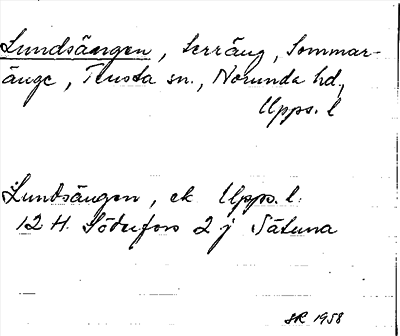 Lundsängen, terräng, Sommar-
änge, Tensta sn., Norunda hd,
Upps. l
Lundsängen, ek Upps. l.
12 H. Söderfors 2 j Sätuna
SR 1958